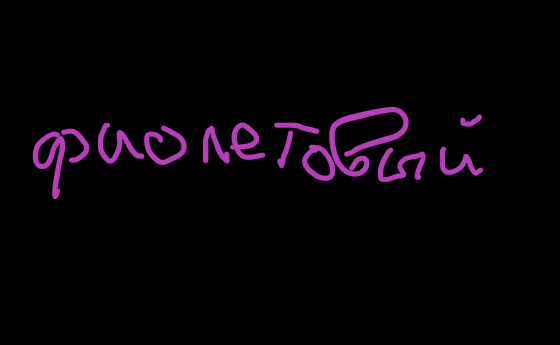 фиолетовый